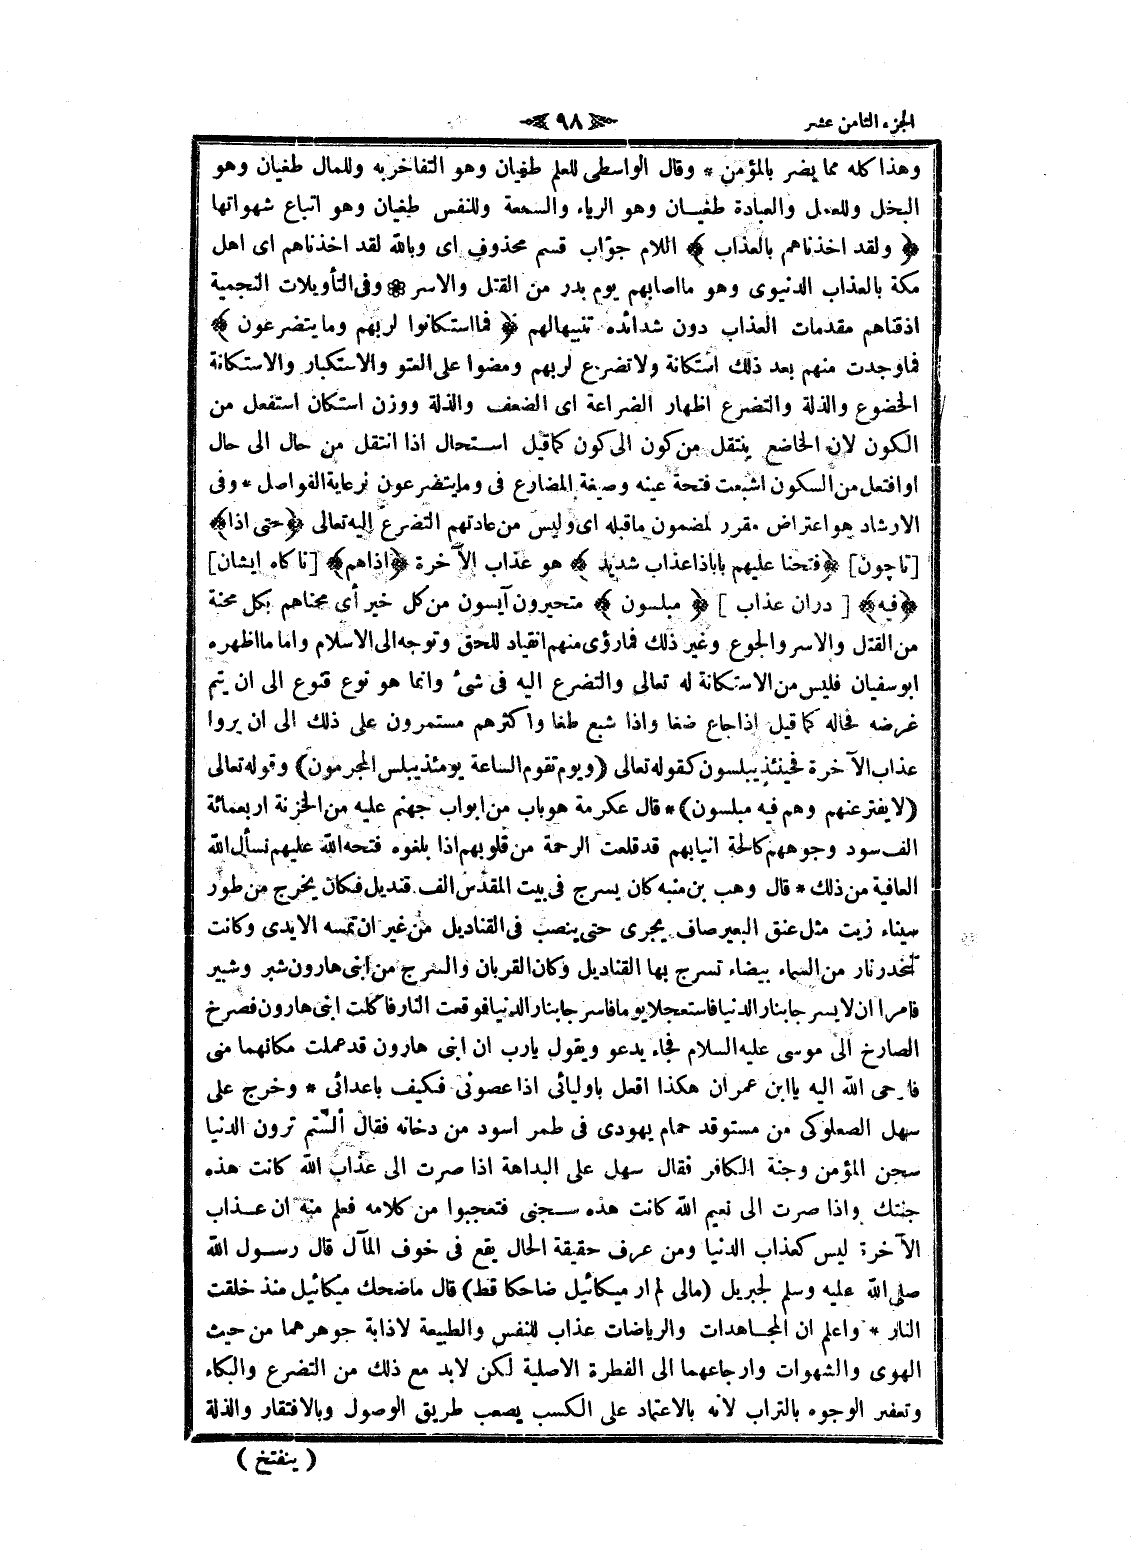 الجزء الثامن عشر
﴿ ٩٨ ﴾
وهذا كله مما يضر بالمؤمن * وقال الواسطى للعلم طغيان وهو التفاخر به وللمال طغيان وهو
البخل وللعمل والعبادة طغيان وهو الرياء والسمعة وللنفس طغيان وهو اتباع شهواتها
﴿ ولقد اخذناهم بالعذاب ﴾ اللام جواب قسم محذوف اى وبالله لقد اخذناهم اى اهل
مكة بالعذاب الدنيوى وهو ما اصابهم يوم بدر من القتل والاسر * وفى التأويلات النجمية
اذقناهم مقدمات العذاب دون شدائده تنبيها لهم ﴿ فما استكانوا لربهم وما يتضرعون ﴾
فما وجدت منهم بعد ذلك استكانة ولا تضرع لربهم ومضوا على العتو والاستكبار والاستكانة
الخضوع والذلة والتضرع اظهار الضراعة اى الضعف والذلة ووزن استكان استفعل من
الكون لان الخاضع ينتقل من كون الى كون كما قيل استحال اذا انتقل من حال الى حال
او افتعل من السكون اشبعت فتحة عينه وصيغة المضارع فى وما يتضرعون لرعاية الفواصل * وفى
الارشاد هو اعتراض مقرر لمضمون ما قبله اى وليس من عادتهم التضرع اليه تعالى ﴿ حتى اذا ﴾
[ تاچون ] ﴿ فتحنا عليهم بابا ذا عذاب شديد ﴾ هو عذاب الآخرة ﴿ اذاهم ﴾ [ ناكاه ايشان ]
﴿ فيه ﴾ [ دران عذاب ] ﴿ مبلسون ﴾ متحيرون آيسون من كل خير أى محناهم بكل محنة
من القتل والاسر والجوع وغير ذلك فما رؤى منهم انقياد للحق وتوجه الى الاسلام واما ما اظهره
ابو سفيان فليس من الاستكانة له تعالى والتضرع اليه فى شئ وانما هو نوع قنوع الى ان يتم
غرضه فحاله كما قيل اذا جاع ضغا واذا شبع طغا واكثرهم مستمرون على ذلك الى ان يروا
عذاب الآخرة فحينئذ يبلسون كقوله تعالى ( ويوم تقوم الساعة يومئذ يبلس المجرمون ) وقوله تعالى
( لا يفتر عنهم وهم فيه مبلسون ) * قال عكرمة هو باب من ابواب جهنم عليه من الخزنة اربعمائة
الف سود وجوههم كالحة انيابهم قد قلعت الرحمة من قلوبهم اذا بلغوه فتحه الله عليهم نسأل الله
العافية من ذلك * قال وهب بن منبه كان يسرج فى بيت المقدس الف قنديل فكان يخرج من طور
سيناء زيت مثل عنق البعير صاف يجرى حتى ينصب فى القناديل من غير ان تمسه الايدى وكانت
تنحدر نار من السماء بيضاء تسرج بها القناديل وكان القربان والسرج من ابنى هارون شبر وشبير
فامرا ان لا يسرجا بنار الدنيا فاستعجلا يوما فاسرجا بنار الدنيا فوقعت النار فاكلت ابنى هارون فصرخ
الصارخ الى موسى عليه السلام فجاء يدعو ويقول يارب ان ابنى هارون قد عملت مكانهما منى
فاوحى الله اليه يا ابن عمران هكذا افعل باوليائى اذا عصونى فكيف باعدائى * وخرج على
سهل الصعلوكى من مستوقد حمام يهودى فى طمر اسود من دخانه فقال ألستم ترون الدنيا
سجن المؤمن وجنة الكافر فقال سهل على البداهة اذا صرت الى عذاب الله كانت هذه
جنتك واذا صرت الى نعيم الله كانت هذه سجنى فتعجبوا من كلامه فعلم منه ان عذاب
الآخرة ليس كعذاب الدنيا ومن عرف حقيقة الحال يقع فى خوف المآل قال رسول الله
صلى الله عليه وسلم لجبريل ( مالى لم ار ميكائيل ضاحكا قط ) قال ماضحك ميكائيل منذ خلقت
النار * واعلم ان المجاهدات والرياضات عذاب للنفس والطبيعة لاذابة جوهرهما من حيث
الهوى والشهوات وارجاعهما الى الفطرة الاصلية لكن لابد مع ذلك من التضرع والبكاء
وتعفير الوجوه بالتراب لانه بالاعتماد على الكسب يصعب طريق الوصول وبالافتقار والذلة
( ينفتح )